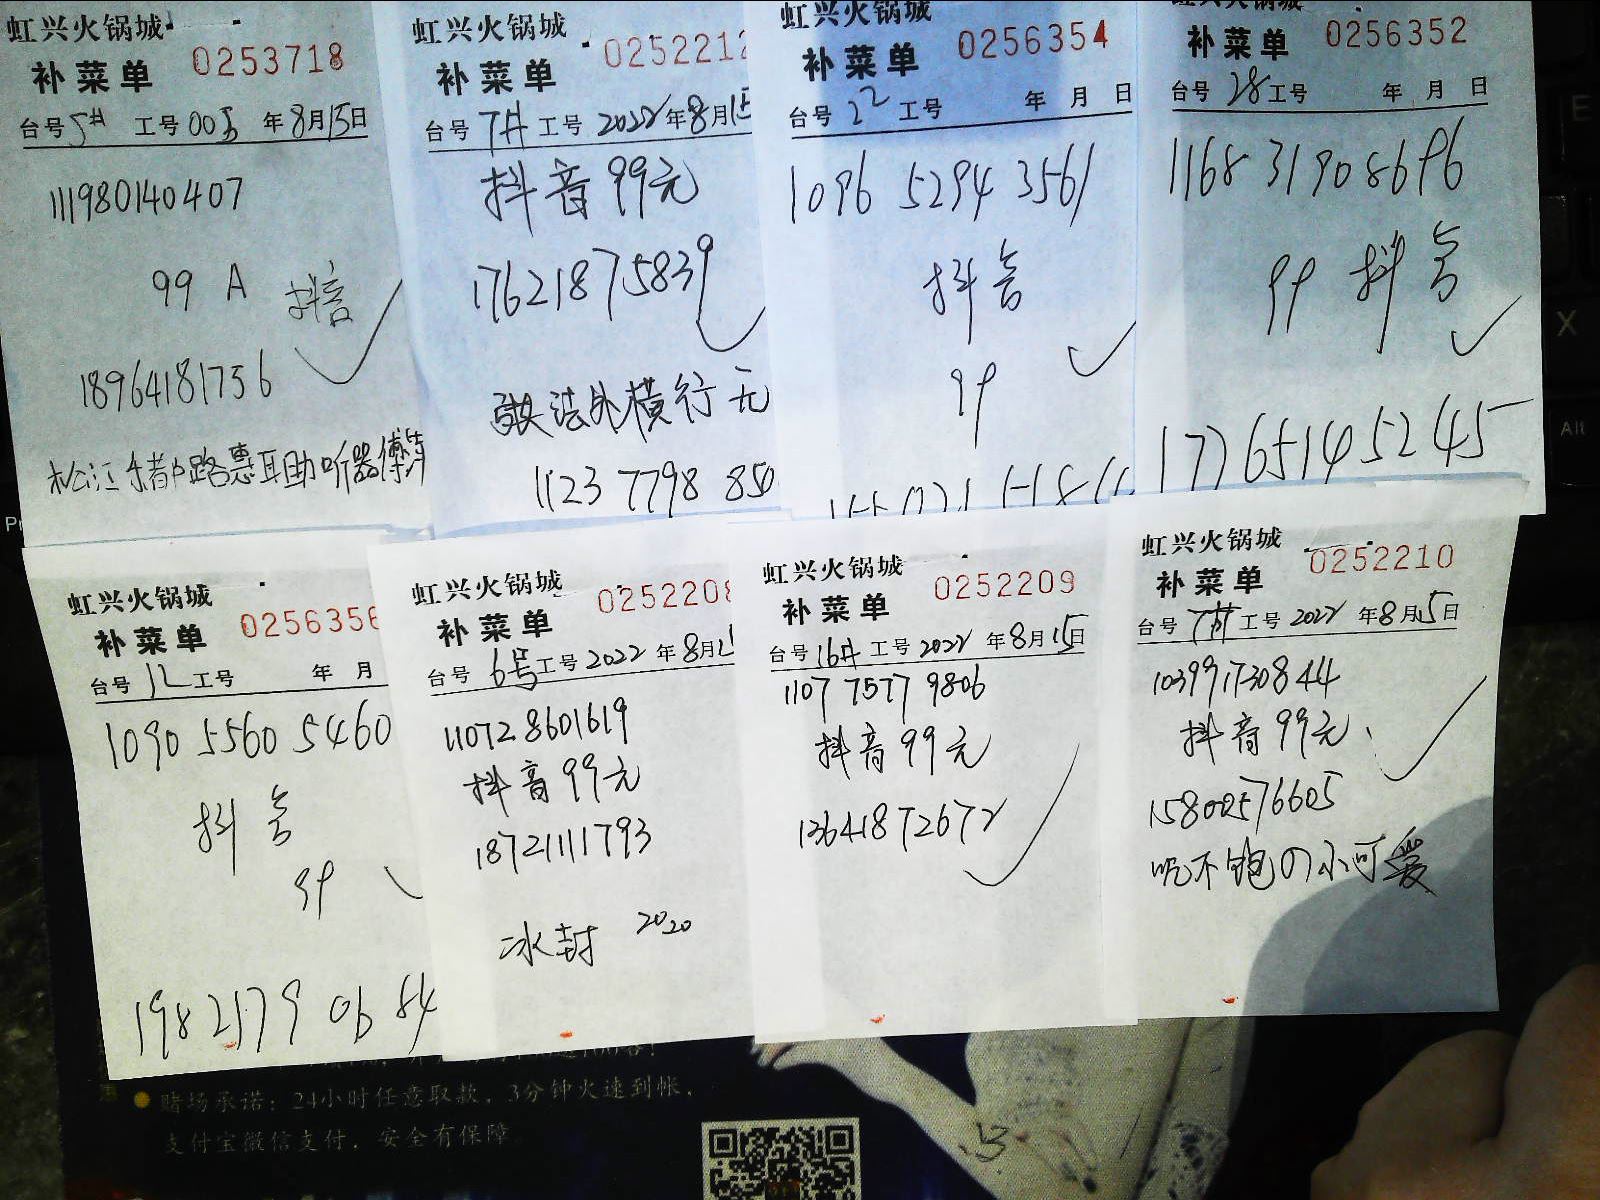 虹兴火锅城
补菜单 0253718
台号 5# 工号 005 年 8月15日
111980140407
99 A 抖音
18964181756
松江乐都路惠耳助听器傅
虹兴火锅城
补菜单 0252212
台号 7# 工号 2022年8月15
抖音 99元
17621875839
法外横行无
1123 7798 850
虹兴火锅城
补菜单 0256354
台号 22 工号 年 月 日
1096 5294 3561
抖音
99
虹兴火锅城
补菜单 0256352
台号 28 工号 年 月 日
1168 3190 8696
99 抖音
17765145245
虹兴火锅城
补菜单 0256356
台号 12 工号 年 月
1090 5560 5460
抖音
99
1982179 06 84
虹兴火锅城
补菜单 0252208
台号 6号 工号 2022 年 8月1
110728601619
抖音 99元
18721111793
冰封 2020
虹兴火锅城
补菜单 0252209
台号 16# 工号 2022 年 8月15日
1107 7577 9806
抖音 99元
13641872672
虹兴火锅城
补菜单 0252210
台号 工号 2022 年8月15日
103991730844
抖音 99元
15800576605
吃不饱の小可爱
赌场承诺：24小时任意取款，3分钟火速到帐，
支付宝微信支付，安全有保障。